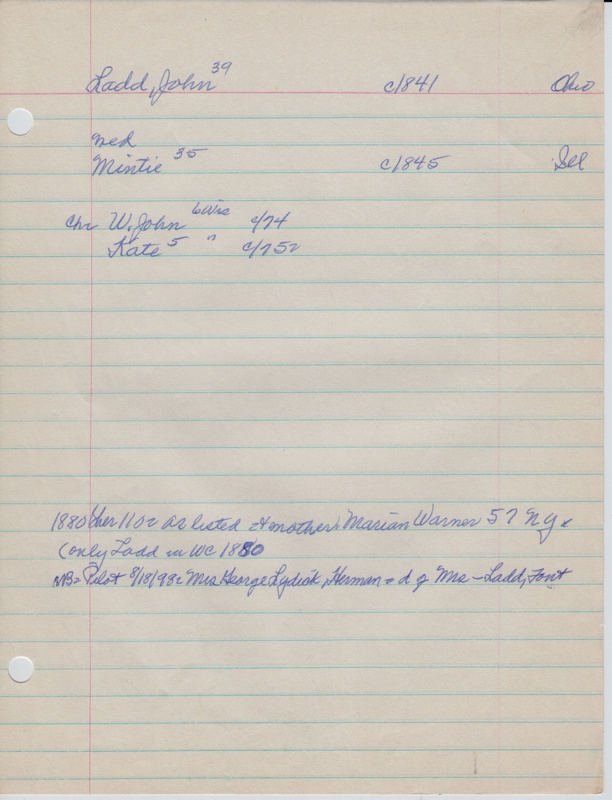 Ladd, John 39 c/841 Ohio
Wed
Mintie 35 c/845 Ill
Chr W. John 6 Wis c/74
Kate 5 " c/75
1880 Cher 110 = as listed + mother, Marian Warner 57 NY
(only Ladd in WC 1880
NB = Pilot 8/18/98 = Mrs George Lydick, Herman = d of Mrs - Ladd, Font